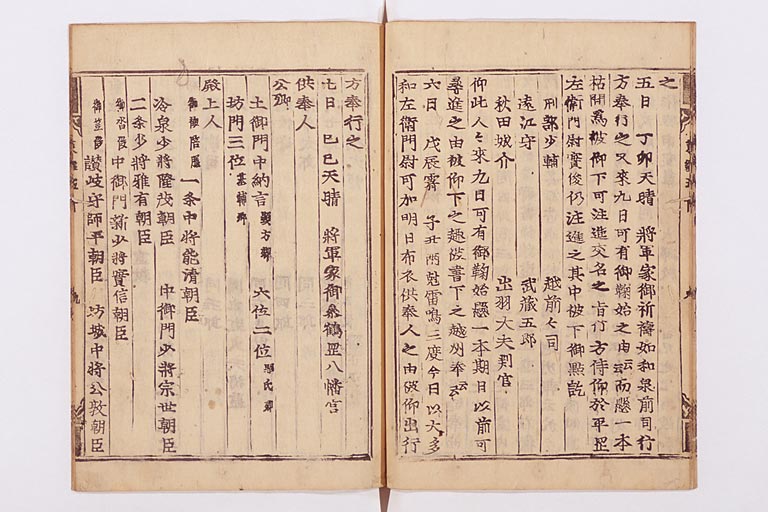 之
五日 丁卯天晴 將軍家御祈禱如和泉前司行
方奉行之又來九日可有御鞠始之由云云而懸一本
枯間爲被仰下可注進交名之旨行方傳仰於平
左衛門尉實俊仍注進之其中被下御點訖
刑部少輔 越前々司
遠江守 武蔵五郎
秋田城介 出羽大夫判官
仰此人々來九日可有御鞠始懸一本期日以前可
尋進之由被仰下之趣被書下之越州奉云云
六日 戊辰霽 子丑兩尅雷鳴三度今日以大多
和左衛門尉可加明日布衣供奉人之由被仰出行
方奉行之
七日 己巳天晴 將軍家御參鶴岡八幡宮
供奉人
公卿
土御門中納言顯方卿 六位二位顯氏卿
坊門三位基輔卿
殿上人
一条中將能清朝臣
冷泉少將隆茂朝臣 中御門少將宗世朝臣
二条少將雅有朝臣
御沓 中御門新少將實信朝臣
御笠 讃岐守師平朝臣 坊城中將公敦朝臣